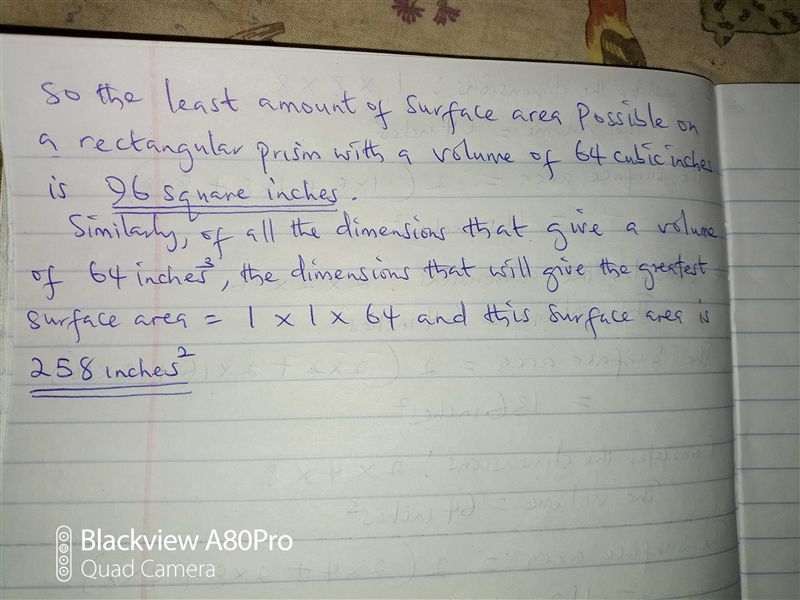 So the least amount of surface area possible on
a rectangular prism with a volume of 64 cubic inches
is 96 square inches.
Similarly, of all the dimensions that give a volume
of 64 inches³, the dimensions that will give the greatest
surface area = 1 x 1 x 64 and this surface area is
258 inches²
Blackview A80Pro
Quad Camera